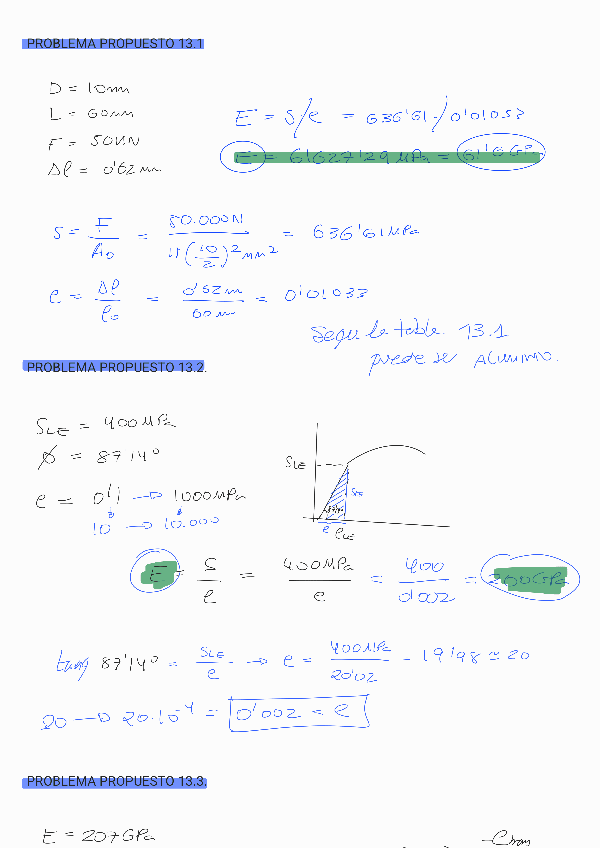 PROBLEMA PROPUESTO 13.1
D = 10mm
L = 60mm
F = 50KN
Δl = 0'62 mm
E = S/e = 636'61/0'01033
E = 61627'29 MPa = 61'6 GPa
S = F/A0 = 50.000N/π(10/2)^2 mm^2 = 636'61 MPa
e = Δl/l0 = 0'62m/60m = 0'01033
Segun la tabla 13.1
puede ser Aluminio.
PROBLEMA PROPUESTO 13.2.
SLE = 400MPa
ø = 87'14º
e = 0'1 → 1000MPa
10 → 10.000
SLE
e eLE
E = S/e = 400MPa/e = 400/0'002 = 200GPa
tang 87'14º = SLE/e → e = 400MPa/20'02 = 19'98 ≈ 20
20 → 20·10^-4 = 0'002 = e
PROBLEMA PROPUESTO 13.3.
E = 207GPa